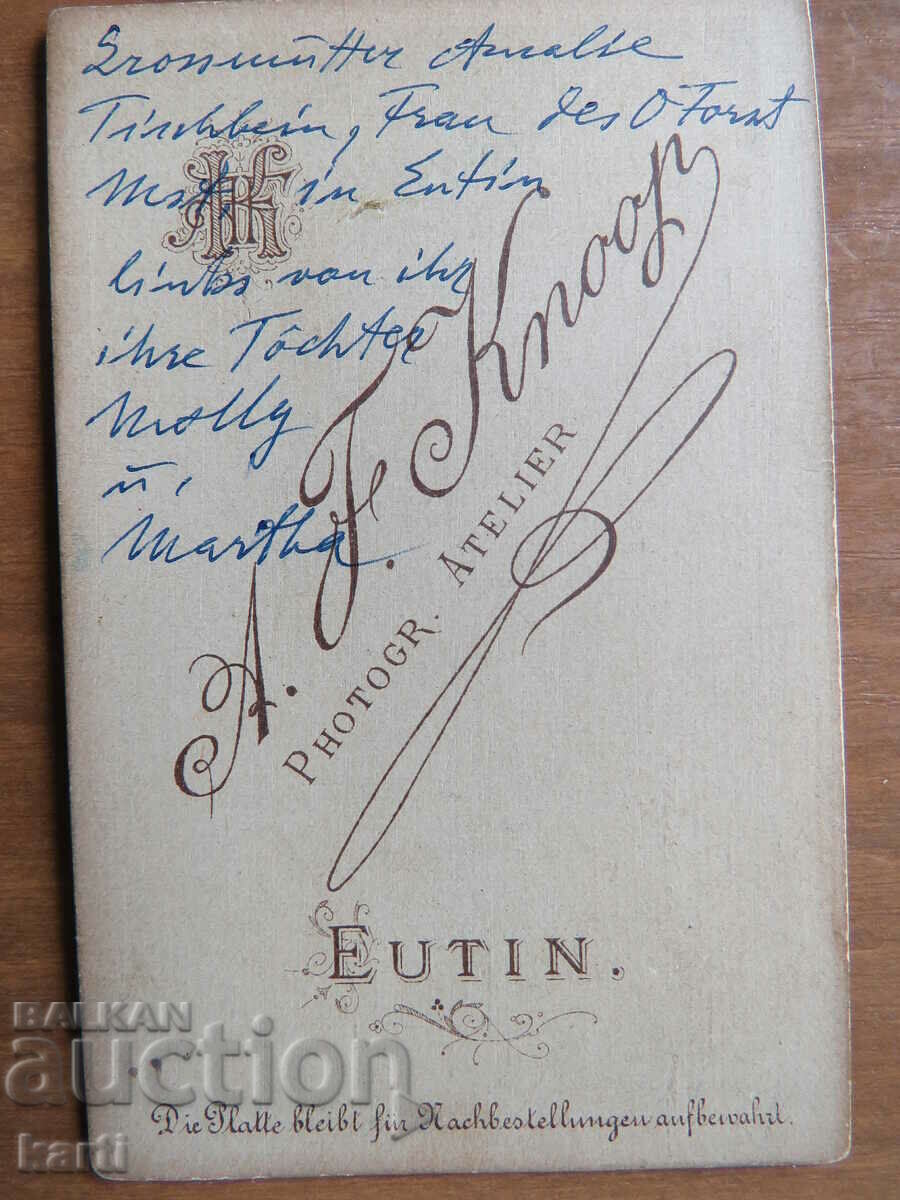 Grossmutter Amalie
Tischbein, Frau des O Forst
Mst. in Eutin
links von ihr
ihre Töchter
Molly
u.
Martha
A. F. Knoop
PHOTOGR. ATELIER
EUTIN.
BALKAN
auction
karti
Die Platte bleibt für Nachbestellungen aufbewahrt.